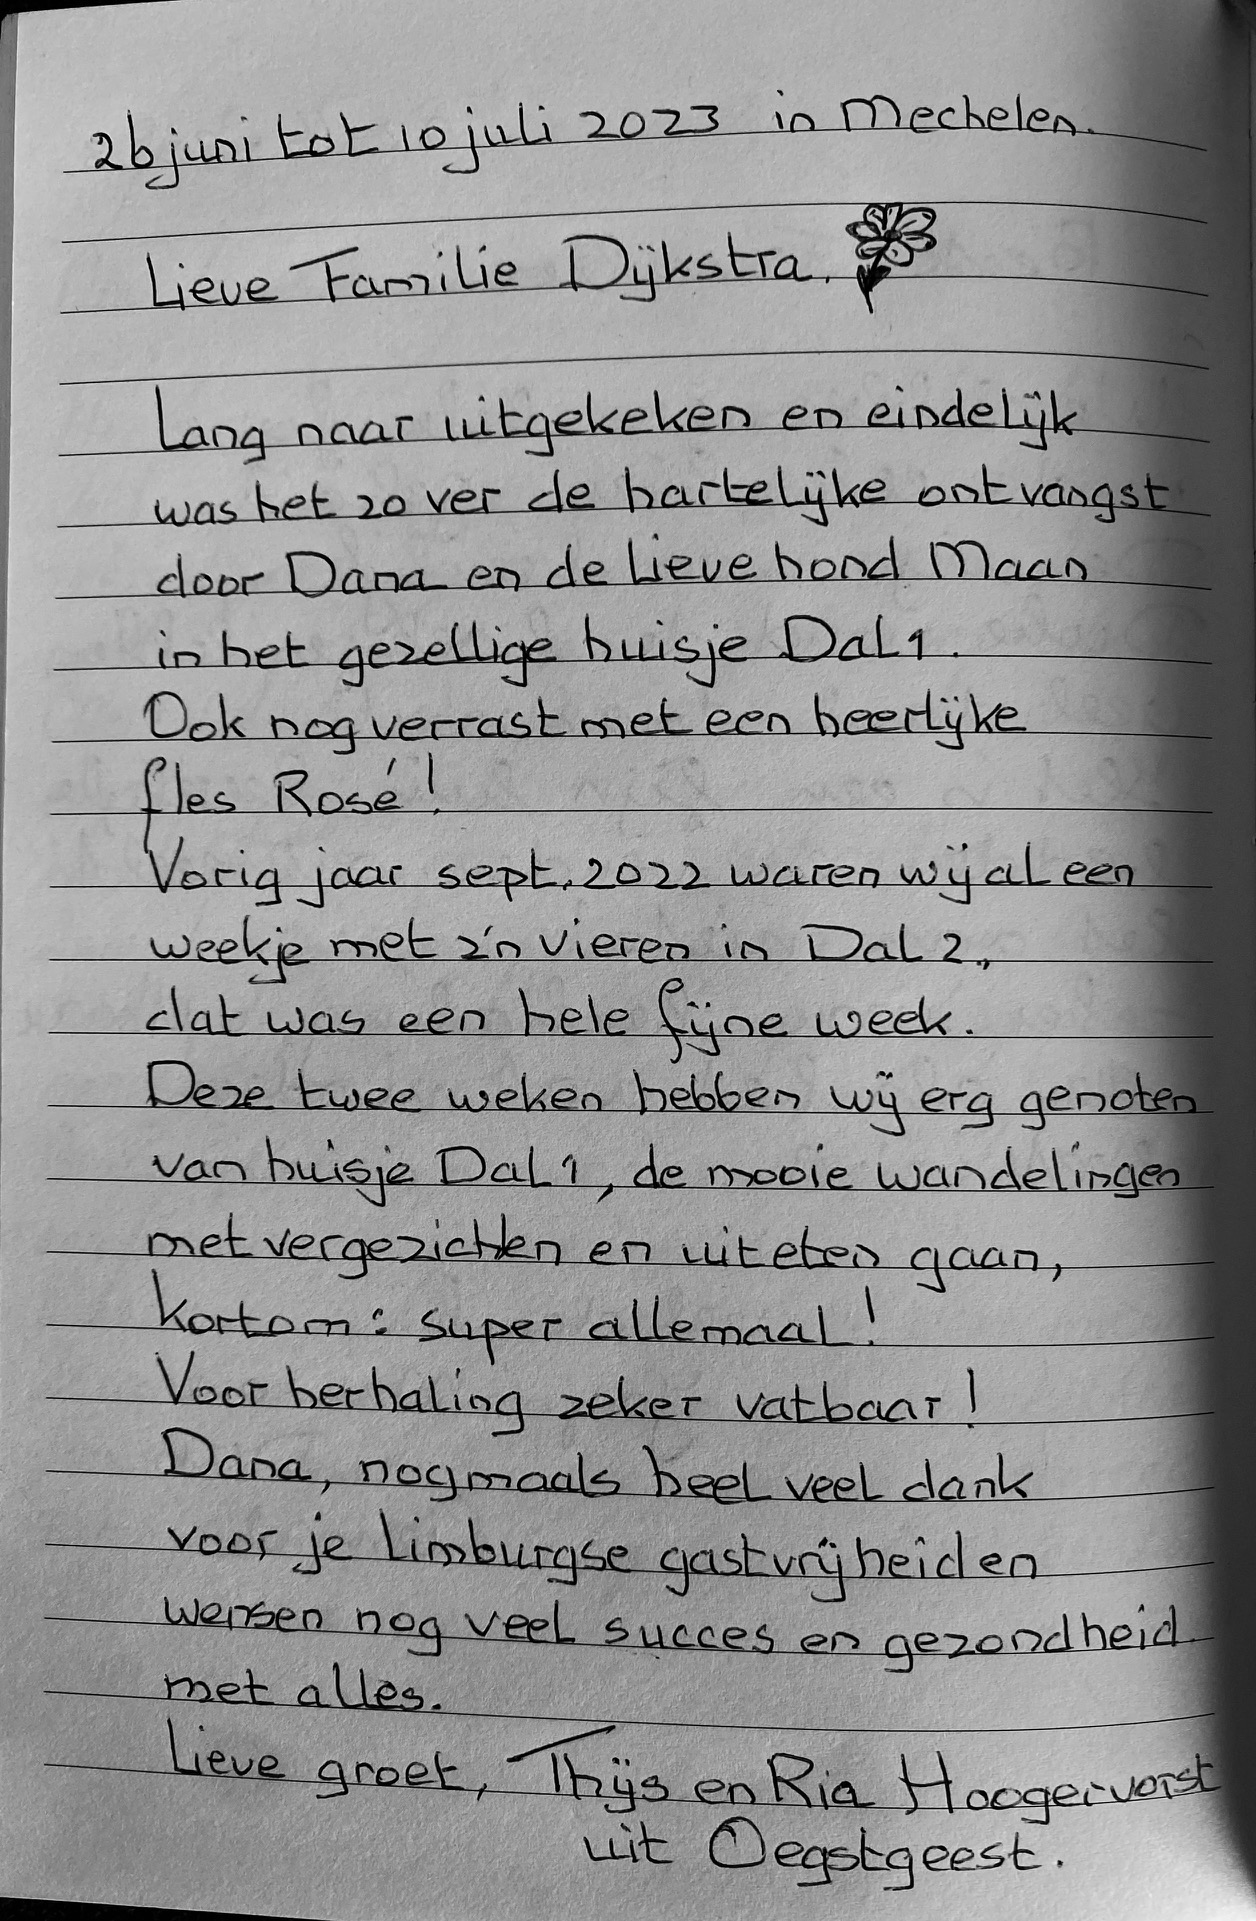 26 juni tot 10 juli 2023 in Mechelen.
Lieve Familie Dijkstra.
Lang naar uitgekeken en eindelijk
was het zo ver de hartelijke ontvangst
door Dana en de lieve hond Maan
in het gezellige huisje Dal 1.
Ook nog verrast met een heerlijke
fles Rosé!
Vorig jaar sept. 2022 waren wij al een
weekje met z'n vieren in Dal 2.,
dat was een hele fijne week.
Deze twee weken hebben wij erg genoten
van huisje Dal 1, de mooie wandelingen
met vergezichten en uit eten gaan,
kortom: super allemaal!
Voor herhaling zeker vatbaar!
Dana, nogmaals heel veel dank
voor je Limburgse gastvrijheid en
wensen nog veel succes en gezondheid
met alles.
Lieve groet, Thijs en Ria Hoogervorst
uit Oegstgeest.